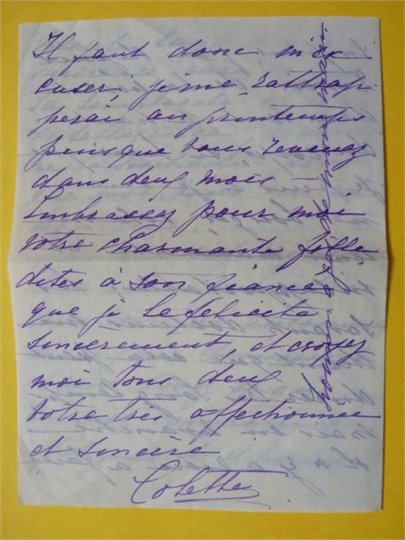 Il faut donc m'ex
cuser, je me rattrap
perai au printemps
puisque vous revenez
dans deux mois —
Embrassez pour moi
votre charmante fille,
dites à son fiancé
que je le félicite
sincèrement, et croyez
moi tous deux
votre très affectionnée
et sincère
Colette